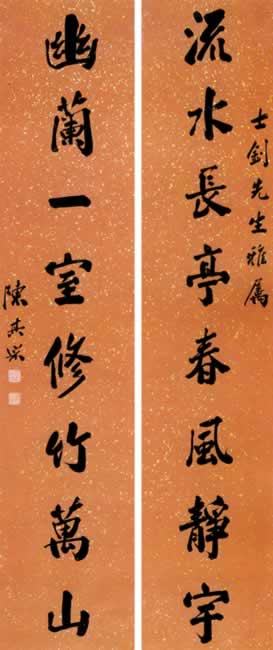 士釗先生雅屬
流水長亭春風靜宇
幽蘭一室修竹萬山
陳其采